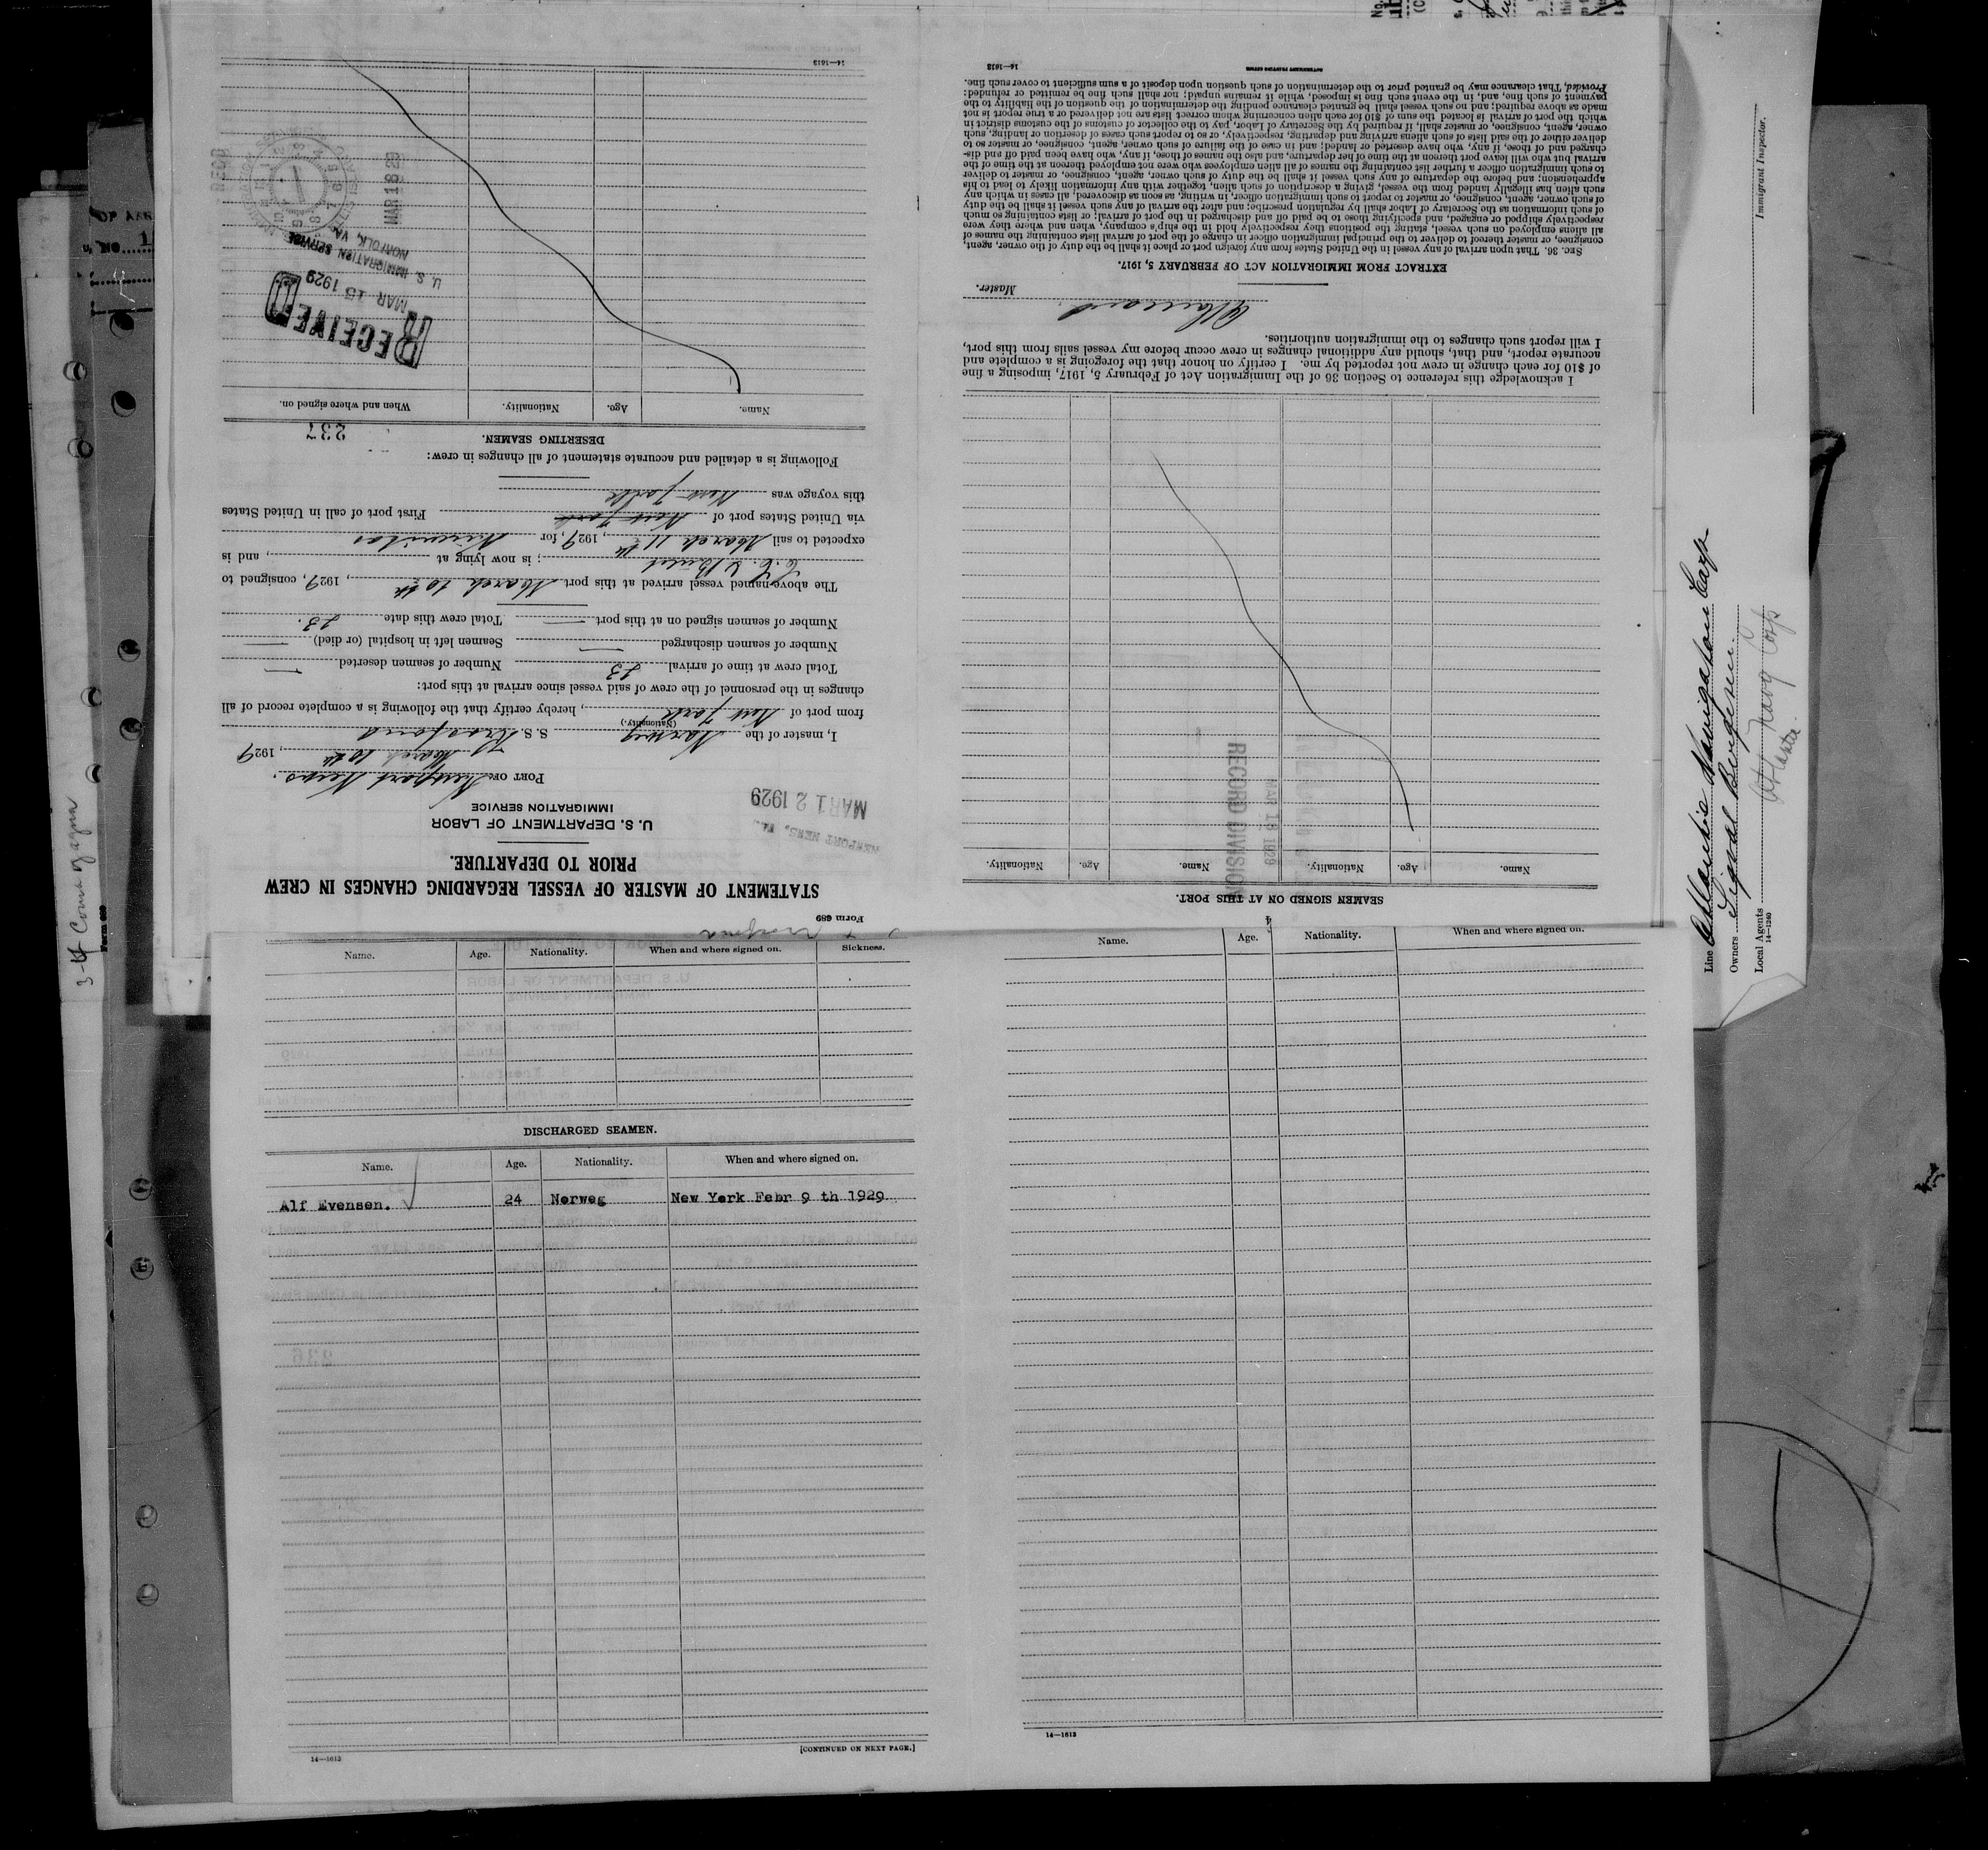 Form 689
STATEMENT OF MASTER OF VESSEL REGARDING CHANGES IN CREW
PRIOR TO DEPARTURE.
NEWPORT NEWS, VA.
MAR 12 1929
U. S. DEPARTMENT OF LABOR
IMMIGRATION SERVICE
PORT OF Newport News.
March 10th, 1929
I, master of the Norweg S. S.
(Nationality.)
from port of New York, hereby certify that the following is a complete record of all
changes in the personnel of the crew of said vessel since arrival at this port:
Total crew at time of arrival 23 Number of seamen deserted —
Number of seamen discharged — Seamen left in hospital (or died) —
Number of seamen signed on at this port — Total crew this date 23.
The above-named vessel arrived at this port March 10th, 1929, consigned to
; is now lying at , and is
expected to sail March 11th, 1929, for Nuevitas
via United States port of New York First port of call in United States
this voyage was New York
Following is a detailed and accurate statement of all changes in crew:
237
DESERTING SEAMEN.
Name. Age. Nationality. When and where signed on.
RECEIVED
MAR 15 1929
U. S. IMMIGRATION SERVICE
NORFOLK, VA.
MAR 18 29
REC'D
14—1613
SEAMEN SIGNED ON AT THIS PORT.
Name. Age. Nationality. Name. Age. Nationality.
RECORD DIVISION
MAR 18 1929
I acknowledge this reference to Section 36 of the Immigration Act of February 5, 1917, imposing a fine
of $10 for each change in crew not reported by me. I certify on honor that the foregoing is a complete and
accurate report, and that, should any additional changes in crew occur before my vessel sails from this port,
I will report such changes to the immigration authorities.
Master.
EXTRACT FROM IMMIGRATION ACT OF FEBRUARY 5, 1917.
SEC. 36. That upon arrival of any vessel in the United States from any foreign port or place it shall be the duty of the owner, agent,
consignee, or master thereof to deliver to the principal immigration officer in charge of the port of arrival lists containing the names of
all aliens employed on such vessel, stating the positions they respectively hold in the ship's company, when and where they were
respectively shipped or engaged, and specifying those to be paid off and discharged in the port of arrival; or lists containing so much
of such information as the Secretary of Labor shall by regulation prescribe; and after the arrival of any such vessel it shall be the duty
of such owner, agent, consignee, or master to report to such immigration officer, in writing, as soon as discovered, all cases in which any
such alien has illegally landed from the vessel, giving a description of such alien, together with any information likely to lead to his
apprehension; and before the departure of any such vessel it shall be the duty of such owner, agent, consignee, or master to deliver
to such immigration officer a further list containing the names of all alien employees who were not employed thereon at the time of the
arrival but who will leave port thereon at the time of her departure, and also the names of those, if any, who have been paid off and dis-
charged and of those, if any, who have deserted or landed; and in case of the failure of such owner, agent, consignee, or master so to
deliver either of the said lists of such aliens arriving and departing, respectively, or so to report such cases of desertion or landing, such
owner, agent, consignee, or master shall, if required by the Secretary of Labor, pay to the collector of customs of the customs district in
which the port of arrival is located the sum of $10 for each alien concerning whom correct lists are not delivered or a true report is not
made as above required; and no such vessel shall be granted clearance pending the determination of the question of the liability to the
payment of such fine, and, in the event such fine is imposed, while it remains unpaid; nor shall such fine be remitted or refunded:
Provided, That clearance may be granted prior to the determination of such question upon deposit of a sum sufficient to cover such fine.
14—1613
GOVERNMENT PRINTING OFFICE
Name. Age. Nationality. When and where signed on. Sickness.
DISCHARGED SEAMEN.
Name. Age. Nationality. When and where signed on.
Alf Evensen. 24 Norweg New York Febr 9 th 1929
14—1613
[CONTINUED ON NEXT PAGE.]
Name. Age. Nationality. When and where signed on.
14—1613
Immigrant Inspector.
Line Atlantic Navigation Corp
Owners Sigval Bergesen.
Local Agents Atlantic Navg Corp
14—1240
Form 689